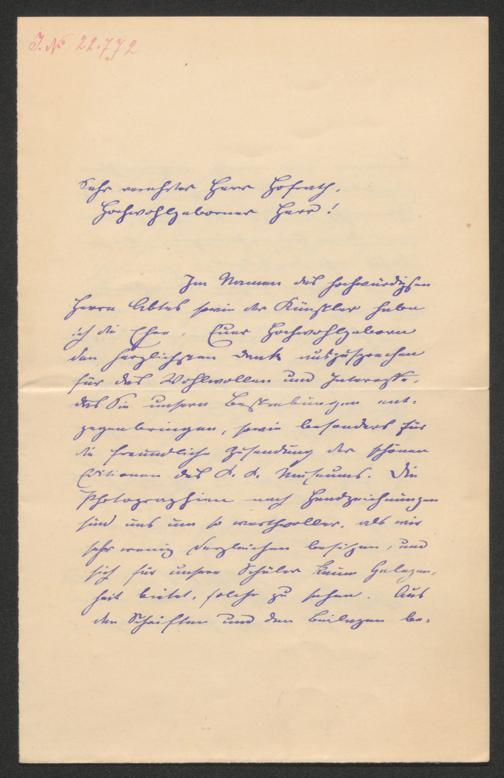 J. № 22.772
Sehr verehrter Herr Hofrath,
Hochwohlgeborner Herr!
Im Namen des hochwürdigsten
Herrn Abtes sowie der Künstler habe
ich die Ehre, Euer Hochwohlgeborn
den herzlichsten Dank auszusprechen
für das Wohlwollen und Interesse,
das Sie unsern Bestrebungen ent-
gegenbringen, sowie besonders für
die freundliche Zusendung der schönen
Editionen des k. k. Museums. Die
Photographien nach Handzeichnungen
sind uns um so werthvoller, als wir
sehr wenig dergleichen besitzen, und
sich für unsere Schüler kaum Gelegen-
heit bietet, solche zu sehen. Aus
den Schriften und den Beilagen be-